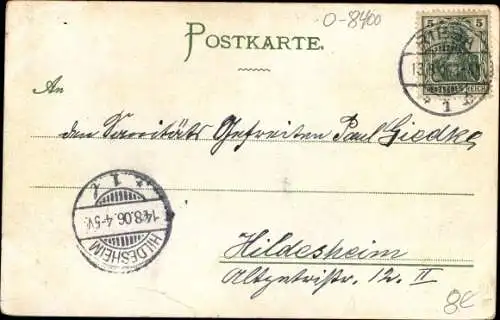 O-8400
POSTKARTE.
5 5
DEUTSCHES REICH
13.8.
1 c
An
den Sanitäts Gefreiten Paul Giedke,
* 1 *
14.8.06.4-5V.
HILDESHEIM
Hildesheim
12. II
8€